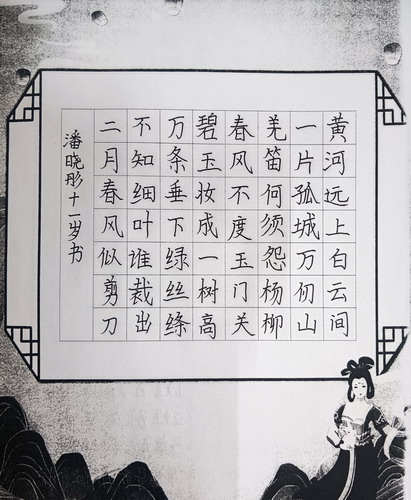 黄河远上白云间
一片孤城万仞山
羌笛何须怨杨柳
春风不度玉门关
碧玉妆成一树高
万条垂下绿丝绦
不知细叶谁裁出
二月春风似剪刀
潘晓彤十一岁书